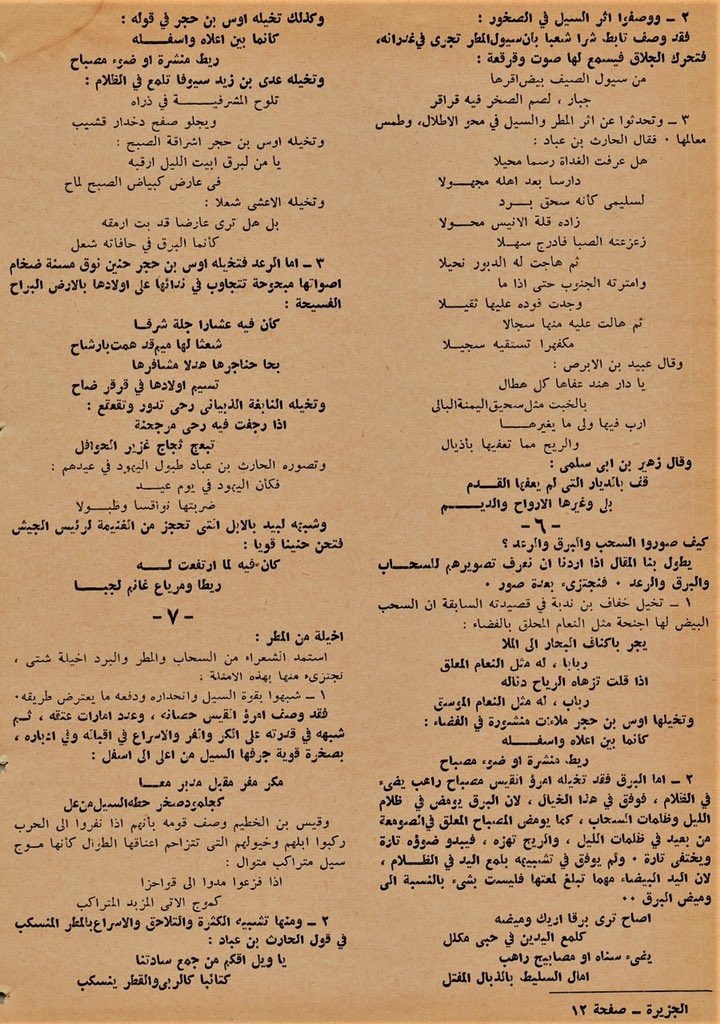 ٢ ــ ووصفوا اثر السيل في الصخور :
فقد وصف تابط شرا شعبا بأن سيول المطر تجرى في غدرانه،
فتحرك الجلاق فيسمع لها صوت وقرقعة :
من سيول الصيف بيض اقرها
جبار ، لصم الصخر فيه قراقر
٣ ــ وتحدثوا عن اثر المطر والسيل في محو الاطلال، وطمس
معالمها ٠ فقال الحارث بن عباد :
هل عرفت الغداة رسما محيلا
دارسا بعد اهله مجهـــولا
لسليمى كأنه سحق بـــرد
زاده قلة الانيس محـــولا
زعزعته الصبا فادرج سهـــلا
ثم هاجت له الدبور نحيلا
وامترته الجنوب حتى اذا ما
وجدت فوده عليها ثقيـــلا
ثم هالت عليه منها سجالا
مكفهرا تستقيه سجيـــلا
وقال عبيد بن الابرص :
يا دار هند عفاها كل هطال
بالخبت مثل سحيق اليمنة البالى
ارب فيها ولى ما يغيرهـــا
والريح مما تعفيها بأذيال
وقال زهير بن ابى سلمى :
قف بالديار التى لم يعفها القـــدم
بل وغيرها الارواح والديـــم
ــ ٦ ــ
كيف صوروا السحب والبرق والرعد ؟
يطول بنا المقال اذا اردنا ان نعرف تصويرهم للسحـــاب
والبرق والرعد ٠ فنجتزىء بعدة صور ٠
١ ــ تخيل خفاف بن ندبة في قصيدته السابقة ان السحب
البيض لها اجنحة مثل النعام المحلق بالفضاء :
يجر باكناف البحار الى الملا
ربابا ، له مثل النعام المعلق
اذا قلت تزهاه الرياح دناله
رباب ، له مثل النعام الموسق
وتخيلها اوس بن حجر ملاءات منشورة في الفضاء :
كأنما بين اعلاه واسفـــله
ريط منشرة او ضوء مصباح
٢ ــ اما البرق فقد تخيله امرؤ القيس مصباح راهب يضىء
في الظلام ، فوفق في هذا الخيال ، لان البرق يومض في ظلام
الليل وظلمات السحاب ، كما يومض المصباح المعلق في الصومعة
من بعيد في ظلمات الليل ، والريح تهزه ، فيبدو ضوؤه تارة
ويختفى تارة ٠ ولم يوفق في تشبيهه بلمع اليد في الظـــلام ،
لان اليد البيضاء مهما تبلغ لمعتها فليست بشىء بالنسبة الى
وميض البرق ٠٠
اصاح ترى برقا اريك وميضه
كلمع اليدين في حبى مكلل
يضىء سناه او مصابيح راهب
امال السليط بالذبال المفتل
وكذلك تخيله اوس بن حجر في قوله :
كأنما بين اعلاه واسفـــله
ريط منشرة او ضوء مصباح
وتخيله عدى بن زيد سيوفا تلمع في الظلام :
تلوح المشرفيـــة في ذراه
ويجلو صفح دخدار قشيب
وتخيله اوس بن حجر اشراقة الصبح :
يا من لبرق ابيت الليل ارقبه
فى عارض كبياض الصبح لماح
وتخيله الاعشى شعلا :
بل هل ترى عارضا قد بت ارمقه
كأنما البرق في حافاته شعل
٣ ــ اما الرعد فتخيله اوس بن حجر حنين نوق مسنة ضخام
اصواتها مبحوحة تتجاوب في ندائها على اولادها بالارض البراح
الفسيحة :
كأن فيه عشارا جلة شرفا
شعثا لها ميم قد همت بارشاح
بحا حناجرها هدلا مشافرها
تسيم اولادها في قرقر ضاح
وتخيله النابغة الذبيانى رحى تدور وتقعقع :
اذا رجفت فيه رحى مرجحنة
تبعج ثجاج غزير الحوافل
وتصوره الحارث بن عباد طبول اليهود في عيدهم :
فكأن اليهود في يوم عيـــد
ضربتها نواقسا وطبـــولا
وشبهه لبيد بالابل التى تحجز من الغنيمة لرئيس الجيش
فتحن حنينا قويا :
كأن فيه لما ارتفعت لـــه
ريطا ومرباع غانم لجبـــا
ــ ٧ ــ
اخيلة من المطر :
استمد الشعراء من السحاب والمطر والبرد اخيلة شتى ،
نجتزىء منها بهذه الامثلة :
١ ــ شبهوا بقوة السيل وانحداره ودفعه ما يعترض طريقه٠
فقد وصف امرؤ القيس حصانه ، وعدد امارات عتقه ، ثـــم
شبهه في قدرته على الكر والفر والاسراع في اقباله وفي ادباره ،
بصخرة قوية جرفها السيل من اعلى الى اسفل :
مكر مفر مقبل مدبر معـــا
كجلمود صخر حطه السيل من عل
وقيس بن الخطيم وصف قومه بأنهم اذا نفروا الى الحرب
ركبوا ابلهم وخيولهم التى تتزاحم اعناقها الطوال كأنها مـوج
سيل متراكب متوال :
اذا فزعوا مدوا الى قواحزا
كموج الاتى المزبد المتراكب
٢ ــ ومنها تشبيه الكثرة والتلاحق والاسراع بالمطر المنسكب
في قول الحارث بن عباد :
يا ويل افكم من جمع سادتنا
كتائبا كالربى والقطر ينسكب
الجزيرة ــ صفحة ١٢